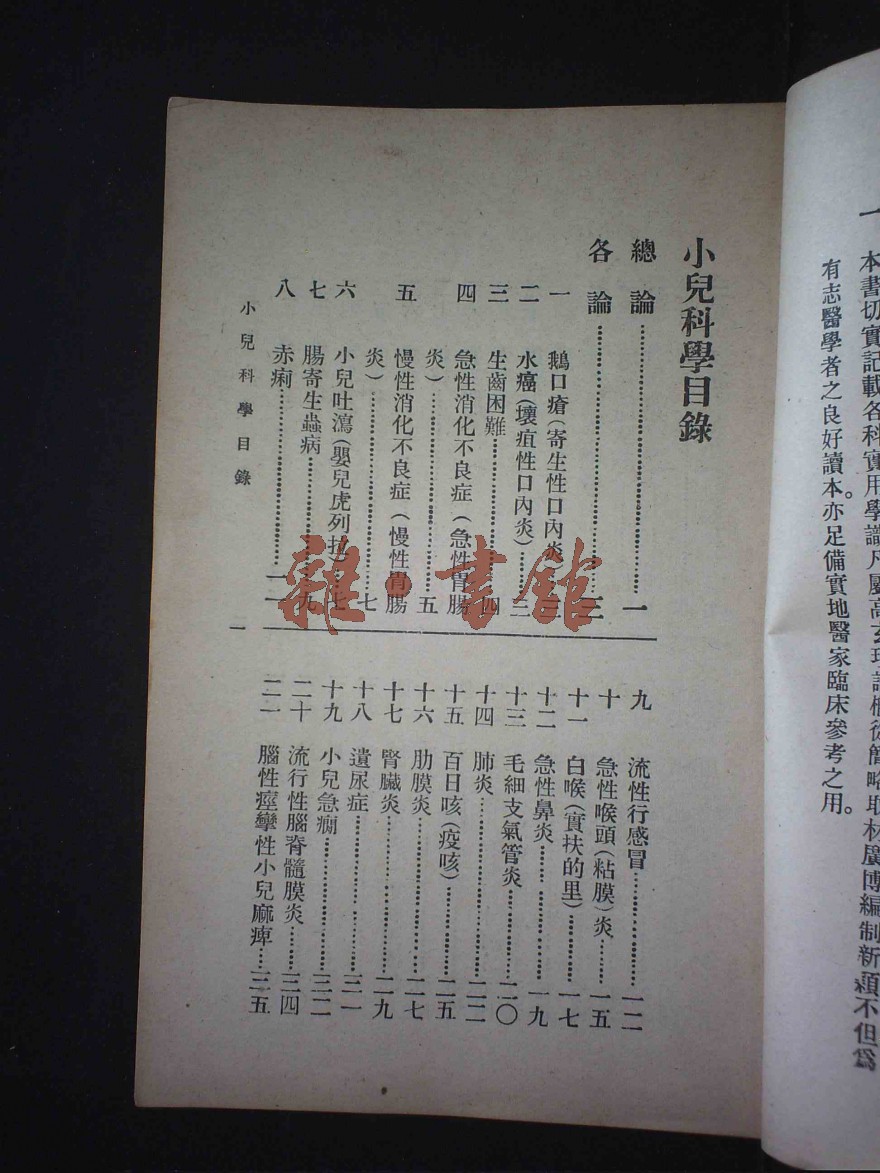 一　本書切實記載各科實用學識凡屬高玄理論槪從簡略取材廣博編制新穎不但爲
有志醫學者之良好讀本。亦足備實地醫家臨床參考之用。
小兒科學目錄
總論……一
各論……三
一　鵝口瘡(寄生性口內炎)……三
二　水癌(壞疽性口內炎)……三
三　生齒困難……四
四　急性消化不良症(急性胃腸
炎)……五
五　慢性消化不良症(慢性胃腸
炎)……七
六　小兒吐瀉(嬰兒虎列拉)……七
七　腸寄生蟲病……九
八　赤痢……一一
九　流性行感冒……一二
十　急性喉頭(粘膜)炎……一五
十一　白喉(實扶的里)……一七
十二　急性鼻炎……一九
十三　毛細支氣管炎……二〇
十四　肺炎……二二
十五　百日咳(疫咳)……二五
十六　肋膜炎……二七
十七　腎臟炎……二九
十八　遺尿症……三一
十九　小兒急癎……三二
二十　流行性腦脊髓膜炎……三四
二一　腦性痙攣性小兒麻痺……三五
小兒科學目錄
一
雜·書館